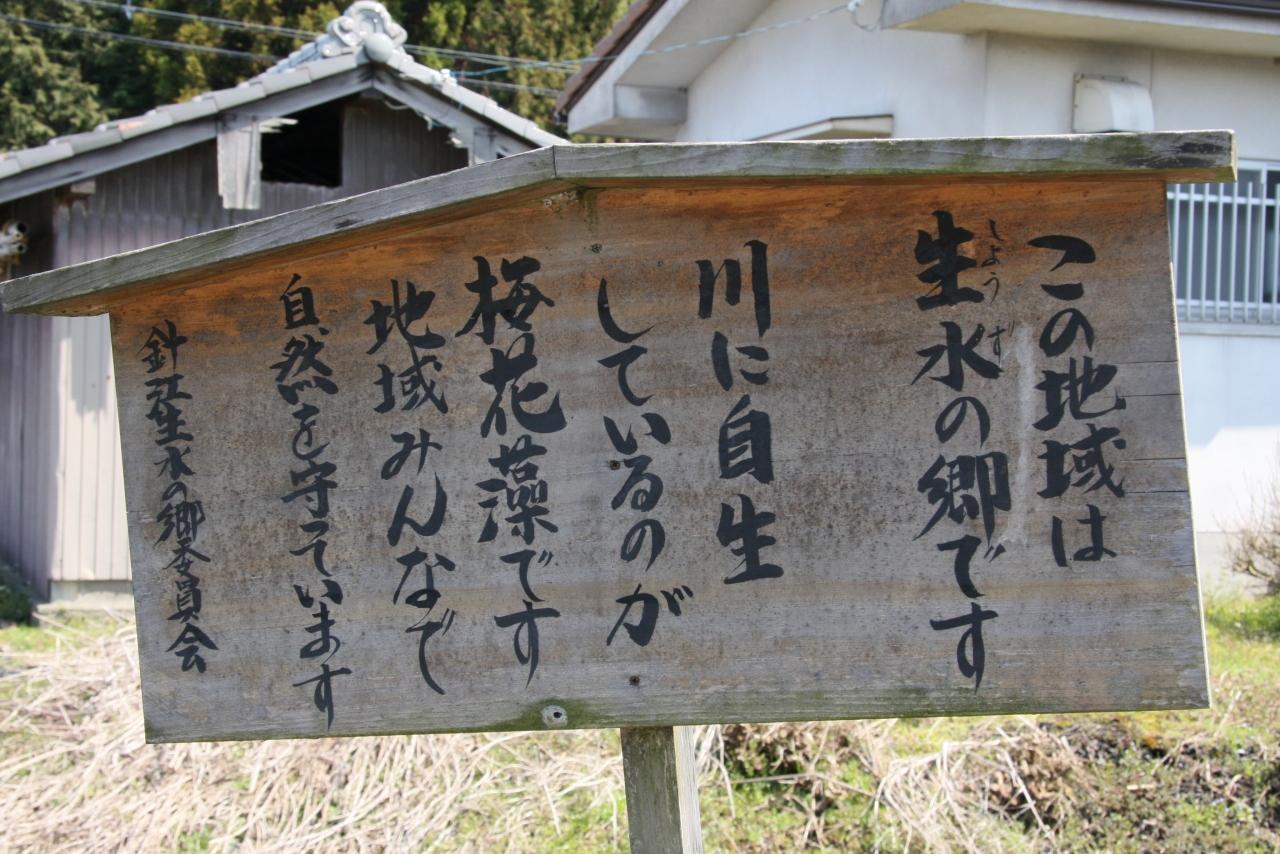 この地域は
生水の郷です
しょうず
川に自生
しているのが
梅花藻です
地域みんなで
自然を守っています
針江生水の郷委員会